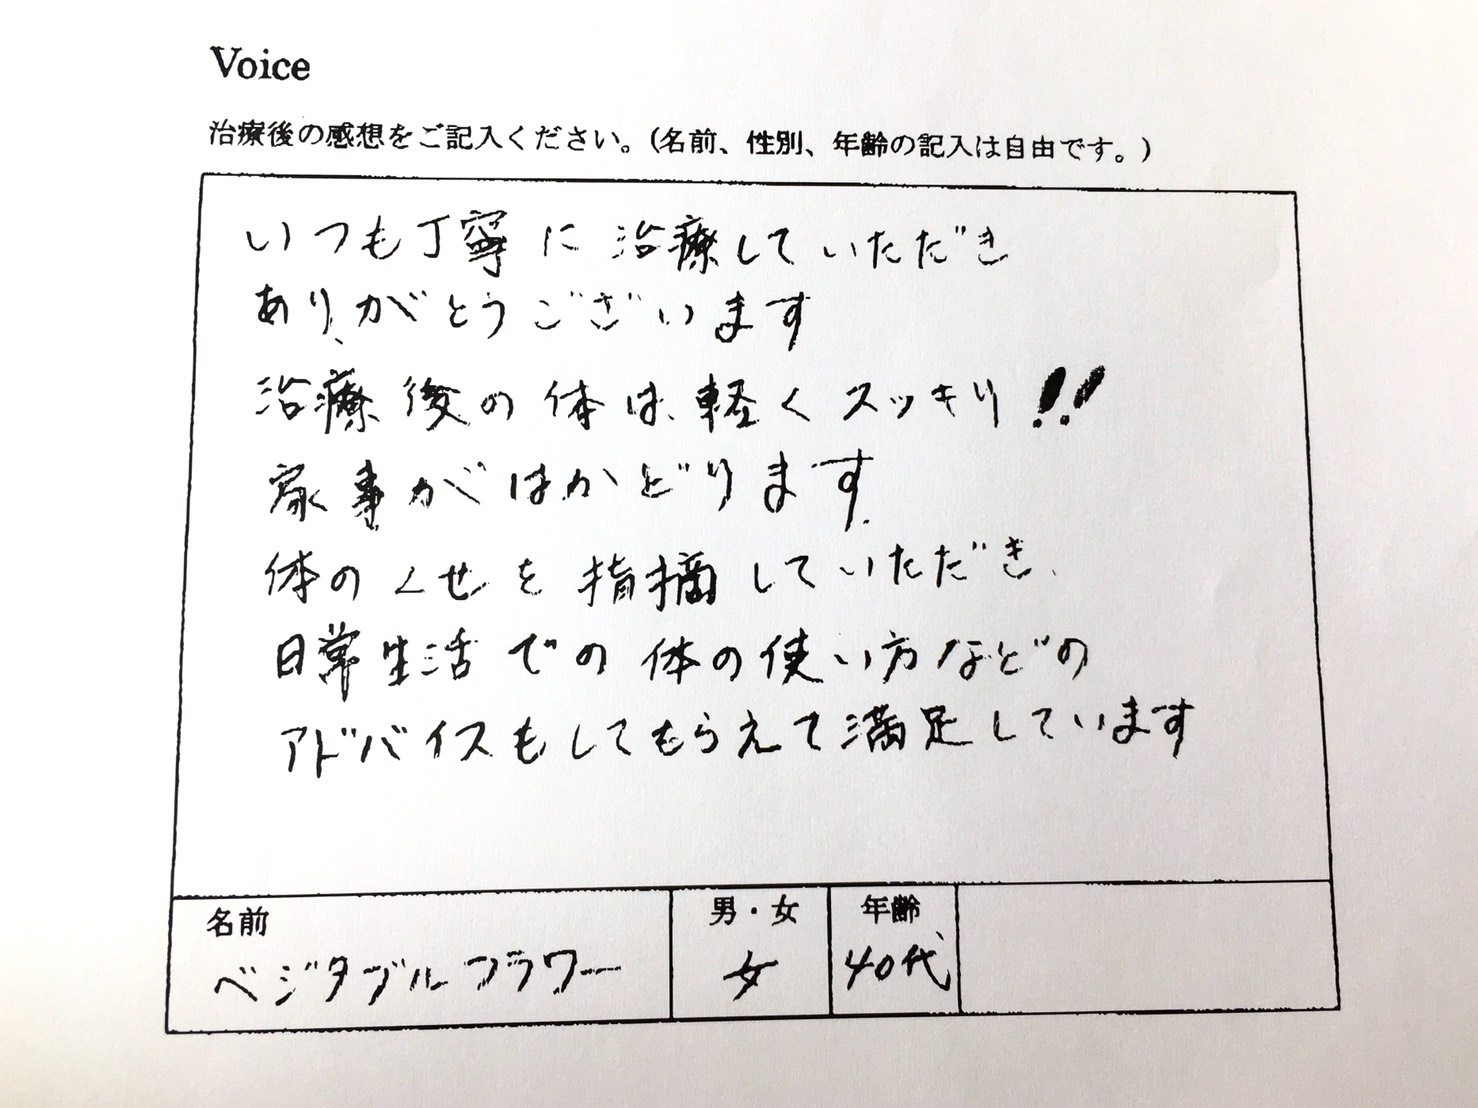 Voice
治療後の感想をご記入ください。(名前、性別、年齢の記入は自由です。)
いつも丁寧に治療していただき
ありがとうございます
治療後の体は軽くスッキリ!!
家事がはかどります
体のくせを指摘していただき
日常生活での体の使い方などの
アドバイスもしてもらえて満足しています
名前 男・女 年齢
ベジタブルフラワー 女 40代